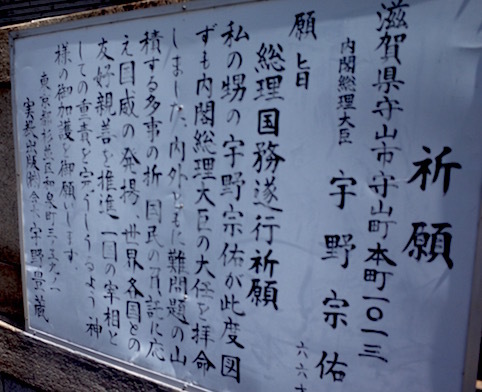 祈願
滋賀県守山市守山町本町一〇一三
内閣総理大臣 宇野宗佑 六六才
願旨
総理国務遂行祈願
私の甥の宇野宗佑が此度図
ずも内閣総理大臣の大任を拝命
しました、内外ともに難問題の山
積する多事の折国民の負託に応
え国威の発揚、世界各国との
友好親善を推進一国の宰相と
しての重責を完うしうるよう神
様の御加護を御願します。
東京都杉並区和泉町
実教出版 宇野豊蔵